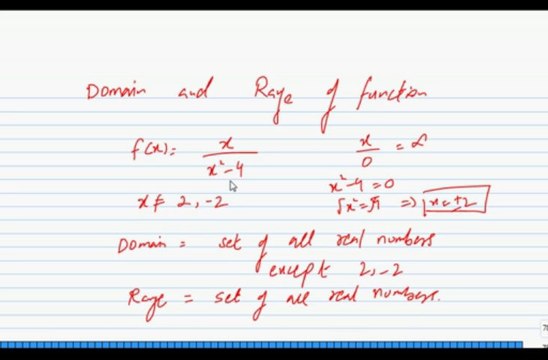 Domain and Range of function
f(x) = x / x²-4
x/0 = ∞
x²-4=0
x ≠ 2, -2
√x²=√4 => x=±2
Domain = set of all real numbers
except 2, -2
Range = set of all real numbers.